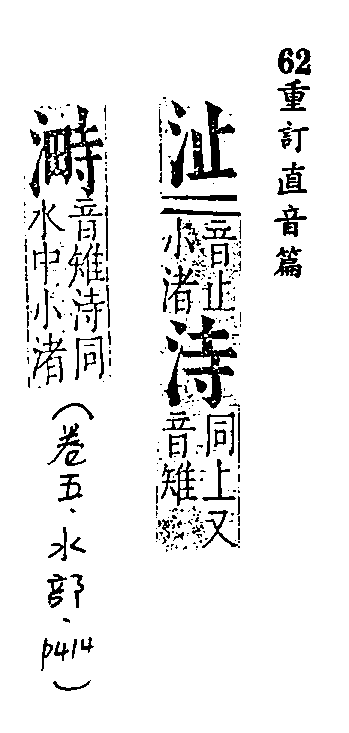 62重訂直音篇
沚
音止
小渚
洔
同上又
音雉
𣽆
音雉洔同
水中小渚
(卷五.水部.p414)